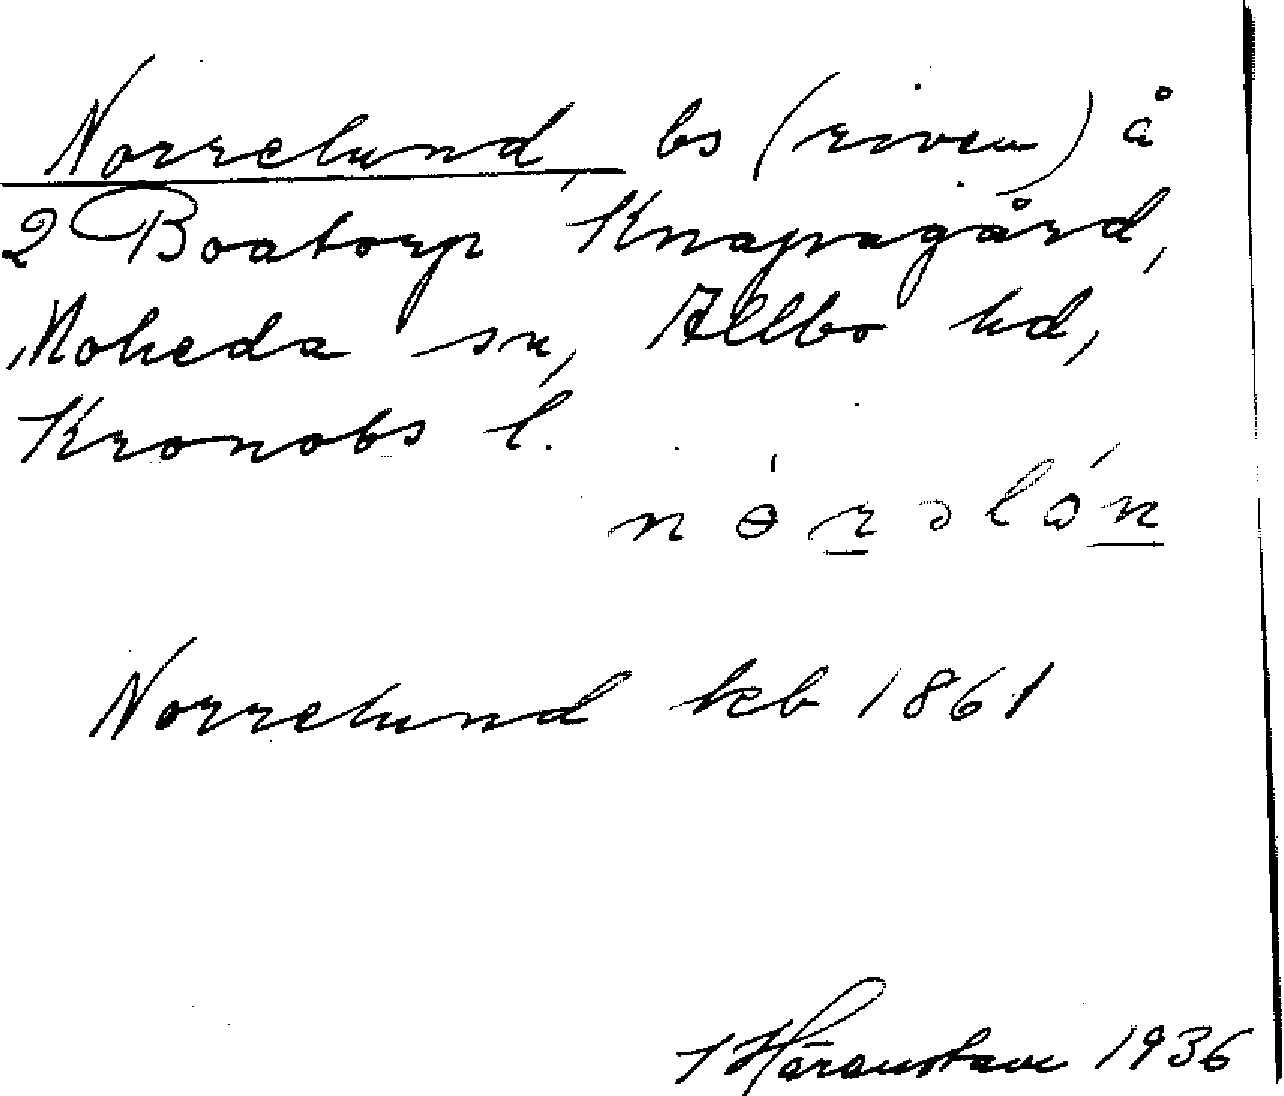 Norrelund, bs (riven) å
2 Boatorp Knapagård,
Moheda sn, Allbo hd,
Kronobs l.
Norrelund kb 1861
1936